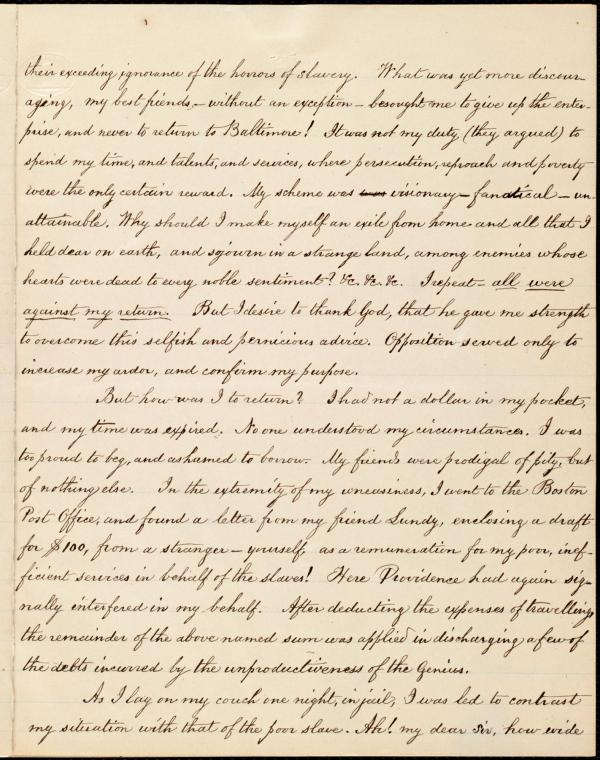 their exceeding ignorance of the horrors of slavery. What was yet more discour-
aging, my best friends, — without an exception — besought me to give up the enter-
prise, and never to return to Baltimore! It was not my duty (they argued) to
spend my time, and talents, and services, where persecution, reproach and poverty
were the only certain reward. My scheme was was visionary — fanatical — un-
attainable. Why should I make myself an exile from home and all that I
held dear on earth, and sojourn in a strange land, among enemies whose
hearts were dead to every noble sentiment? &c. &c. &c. I repeat — all were
against my return. But I desire to thank God, that he gave me strength
to overcome this selfish and pernicious advice. Opposition served only to
increase my ardor, and confirm my purpose.
But how was I to return? I had not a dollar in my pocket,
and my time was expired. No one understood my circumstances. I was
too proud to beg, and ashamed to borrow. My friends were prodigal of pity, but
of nothing else. In the extremity of my uneasiness, I went to the Boston
Post Office, and found a letter from my friend Lundy, enclosing a draft
for $100, from a stranger — yourself, as a remuneration for my poor, inef-
ficient services in behalf of the slaves! Here Providence had again sig-
nally interfered in my behalf. After deducting the expenses of travelling,
the remainder of the above named sum was applied in discharging a few of
the debts incurred by the unproductiveness of the Genius.
As I lay on my couch one night, in jail, I was led to contrast
my situation with that of the poor slave. Ah! my dear Sir, how wide